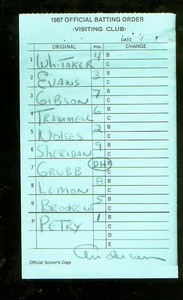 1987 OFFICIAL BATTING ORDER
(VISITING CLUB)
DATE
ORIGINAL POS. CHANGE
1 WHITAKER 4 B
C
2 EVANS 3 B
C
3 GIBSON 7 B
C
4 TRAMMELL 6 B
C
5 NOKES 2 B
C
6 SHERIDAN 9 B
C
7 GRUBB DH B
C
8 LEMON 8 B
C
9 BROOKENS 5 B
C
P PETRY 1 B
C
D
E
Official Scorer's Copy